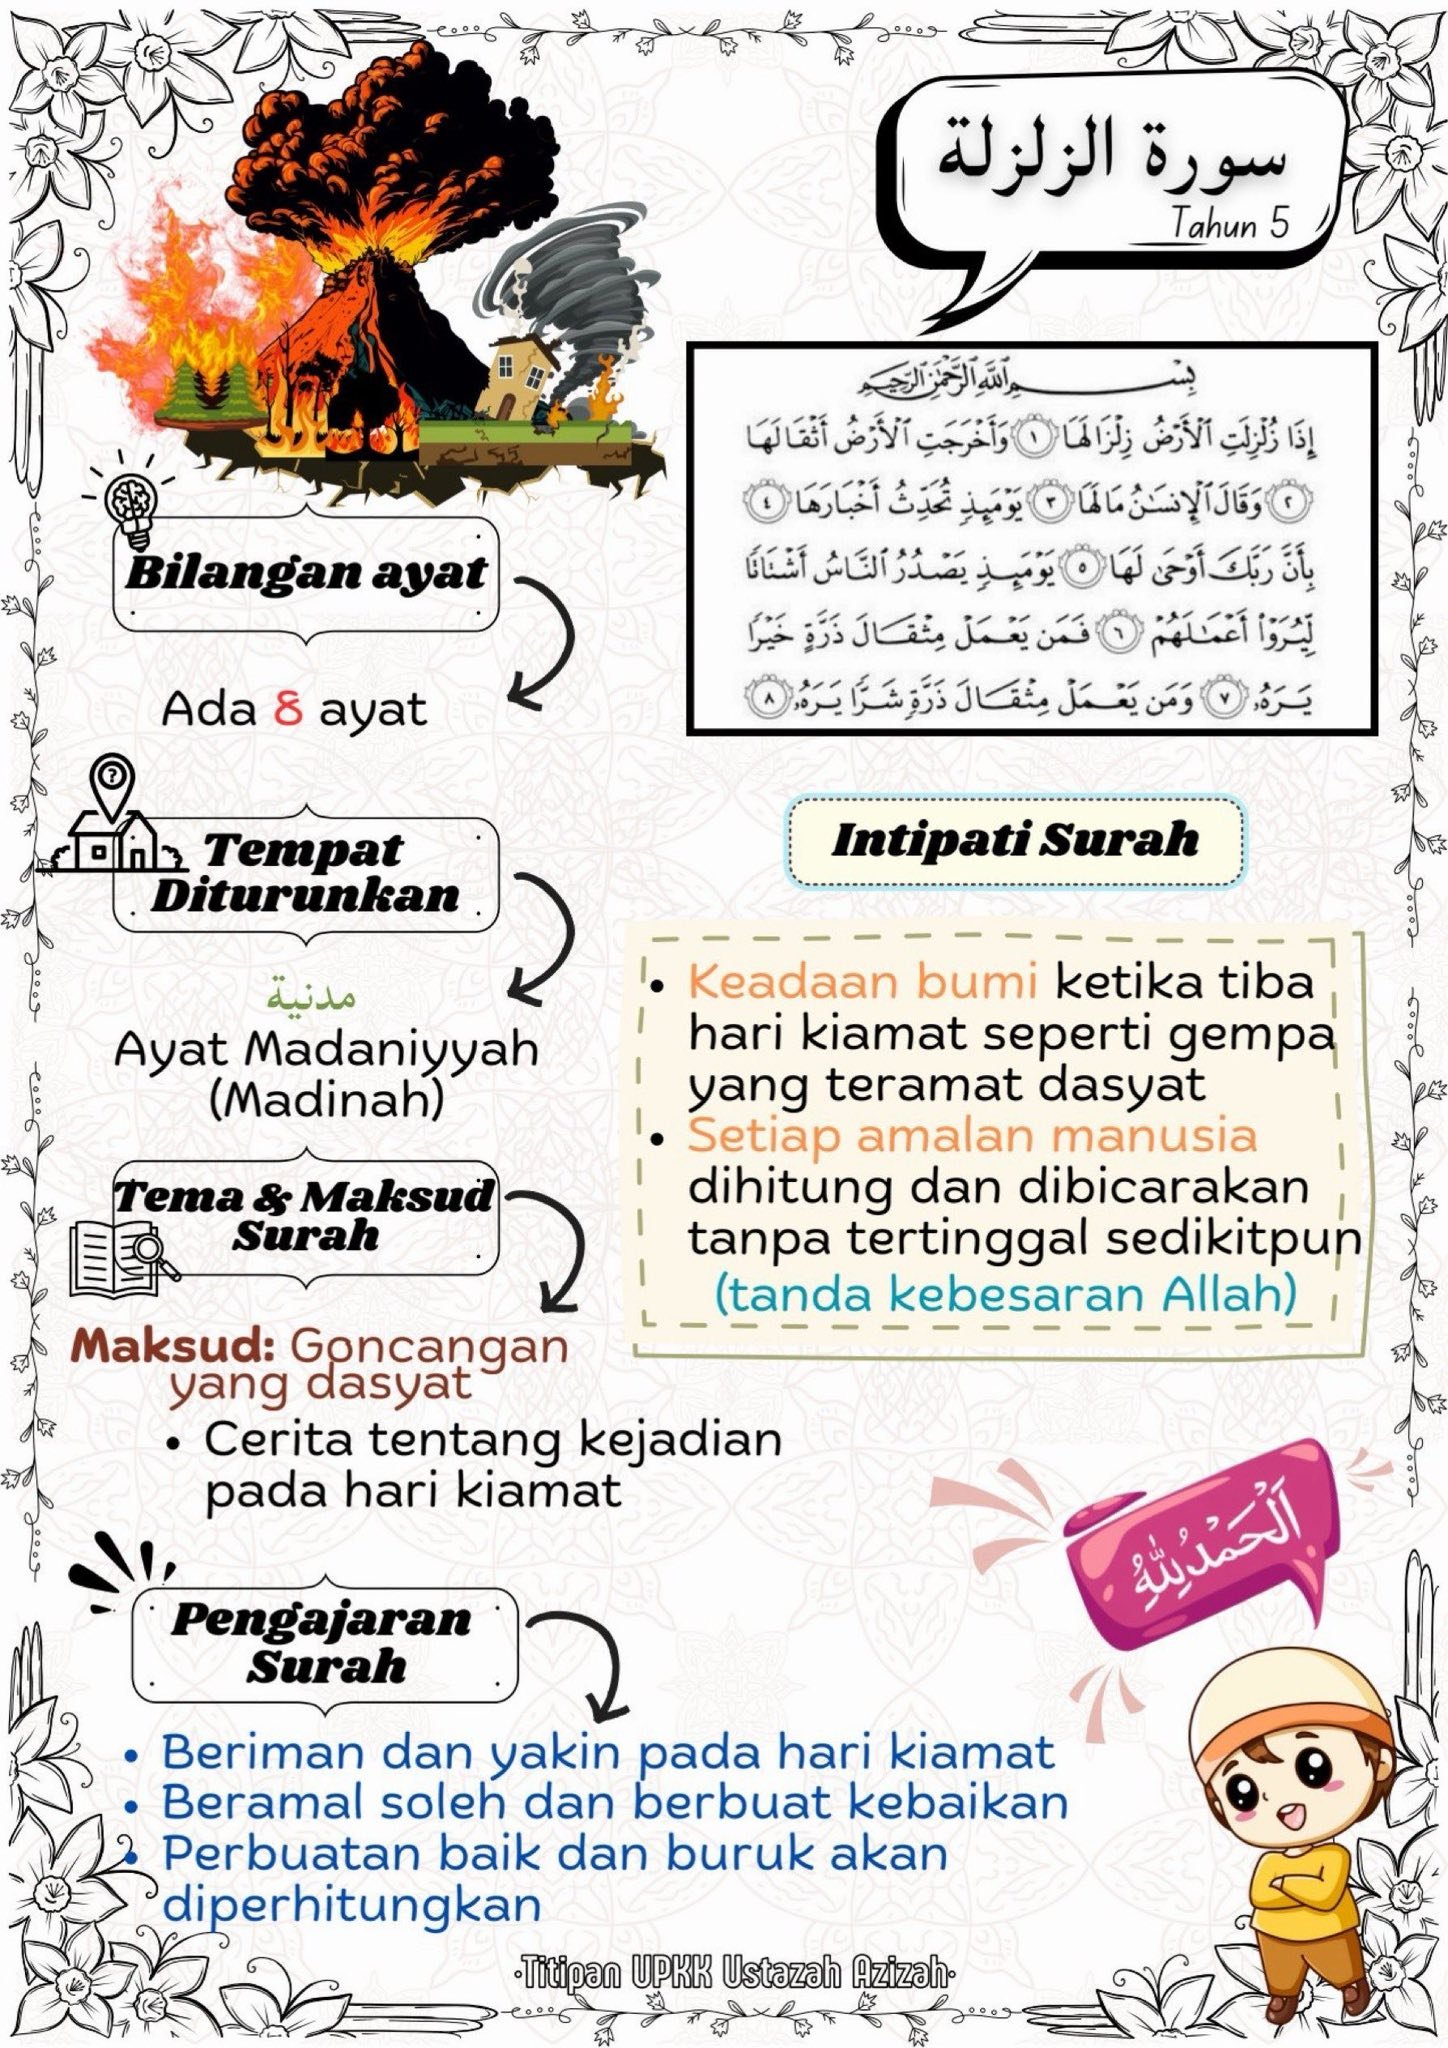 سورة الزلزلة
Tahun 5
بِسْمِ اللَّهِ الرَّحْمَٰنِ الرَّحِيمِ
إِذَا زُلْزِلَتِ ٱلْأَرْضُ زِلْزَالَهَا ١ وَأَخْرَجَتِ ٱلْأَرْضُ أَثْقَالَهَا
٢ وَقَالَ ٱلْإِنسَٰنُ مَا لَهَا ٣ يَوْمَئِذٍ تُحَدِّثُ أَخْبَارَهَا ٤
بِأَنَّ رَبَّكَ أَوْحَىٰ لَهَا ٥ يَوْمَئِذٍ يَصْدُرُ ٱلنَّاسُ أَشْتَاتًا
لِّيُرَوْا۟ أَعْمَٰلَهُمْ ٦ فَمَن يَعْمَلْ مِثْقَالَ ذَرَّةٍ خَيْرًا
يَرَهُۥ ٧ وَمَن يَعْمَلْ مِثْقَالَ ذَرَّةٍ شَرًّا يَرَهُۥ ٨
Bilangan ayat
Ada 8 ayat
Tempat
Diturunkan
مدنية
Ayat Madaniyyah
(Madinah)
Tema & Maksud
Surah
Maksud: Goncangan
yang dasyat
• Cerita tentang kejadian
pada hari kiamat
Intipati Surah
• Keadaan bumi ketika tiba
hari kiamat seperti gempa
yang teramat dasyat
• Setiap amalan manusia
dihitung dan dibicarakan
tanpa tertinggal sedikitpun
(tanda kebesaran Allah)
اَلْحَمْدُلِلّٰهِ
Pengajaran
Surah
• Beriman dan yakin pada hari kiamat
• Beramal soleh dan berbuat kebaikan
• Perbuatan baik dan buruk akan
diperhitungkan
•Titipan UPKK Ustazah Azizah•